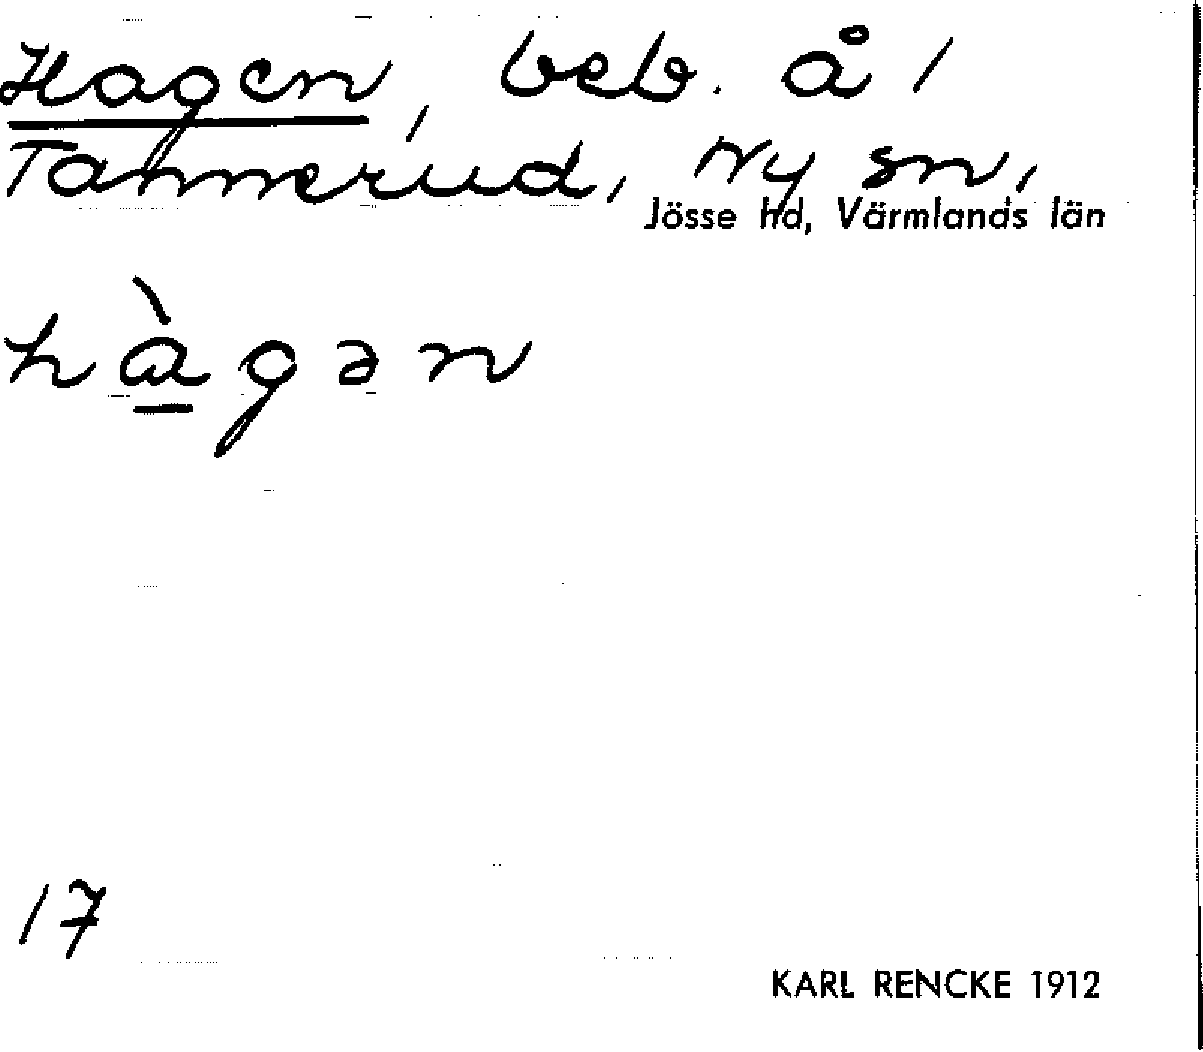 Hagen, beb. å 1
Tannerud, Ny sn,
Jösse hd, Värmlands län
hàgən
17
KARL RENCKE 1912